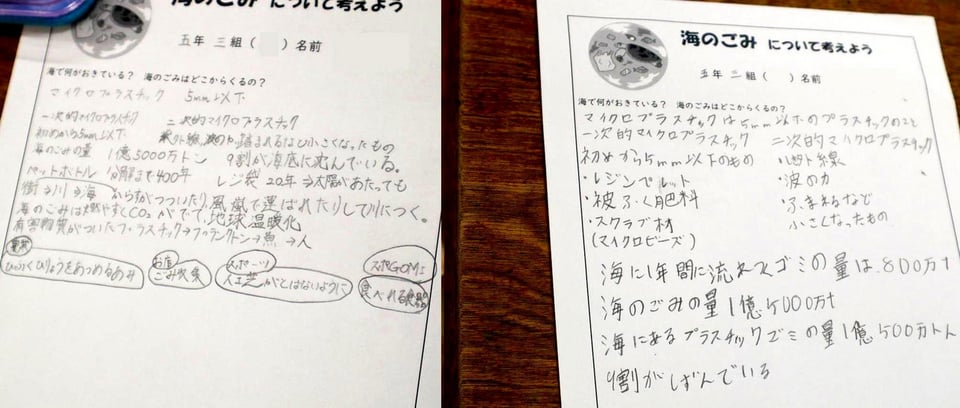 海のごみ について考えよう
五年 三組 ( ) 名前
海で何がおきている? 海のごみはどこからくるの?
マイクロプラスチック 5mm以下
一次的マイクロプラスチック 二次的マイクロプラスチック
初めから5mm以下 紫外線、波の力 踏まれるなど小さくなったもの
海のごみの量 1億5000万トン 9割が海底に沈んでいる。
ペットボトル 分解まで400年 レジ袋 20年→太陽があたっても
街→川→海 からすがつついたり、風で運ばれたりして川につく。
海のごみは燃やすCO₂がでて、地球温暖化
有害物質がついたプラスチック→プランクトン→魚→人
農業
ひふくひりょうをあつめるあみ
お店
ごみ収集
スポーツ
人工芝がとばないように
スポGOMI
食べれる食器
海のごみ について考えよう
五年 三組 ( ) 名前
海で何がおきている? 海のごみはどこからくるの?
マイクロプラスチックは5mm以下のプラスチックのこと
一次的マイクロプラスチック 二次的マイクロプラスチック
初めから5mm以下のもの ・紫外線
・レジンペレット ・波の力
・被ふく肥料 ・ふまれるなど
・スクラブ材 小さくなったもの
(マイクロビーズ)
海に1年間に流れるゴミの量は、800万t
海のごみの量1億5000万t
海にあるプラスチックゴミの量1億500万トン
9割がしずんでいる